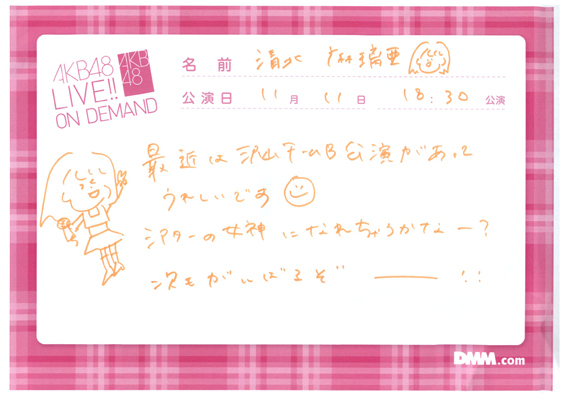 AKB48
LIVE!!
ON DEMAND
AKB
48
名前 清水 麻璃亜
公演日 11月 11日 18:30 公演
最近は沢山チームB公演があって
うれしいです
シアターの女神になれちゃうかなー?
次もがんばるぞ ー !!
DMM.com